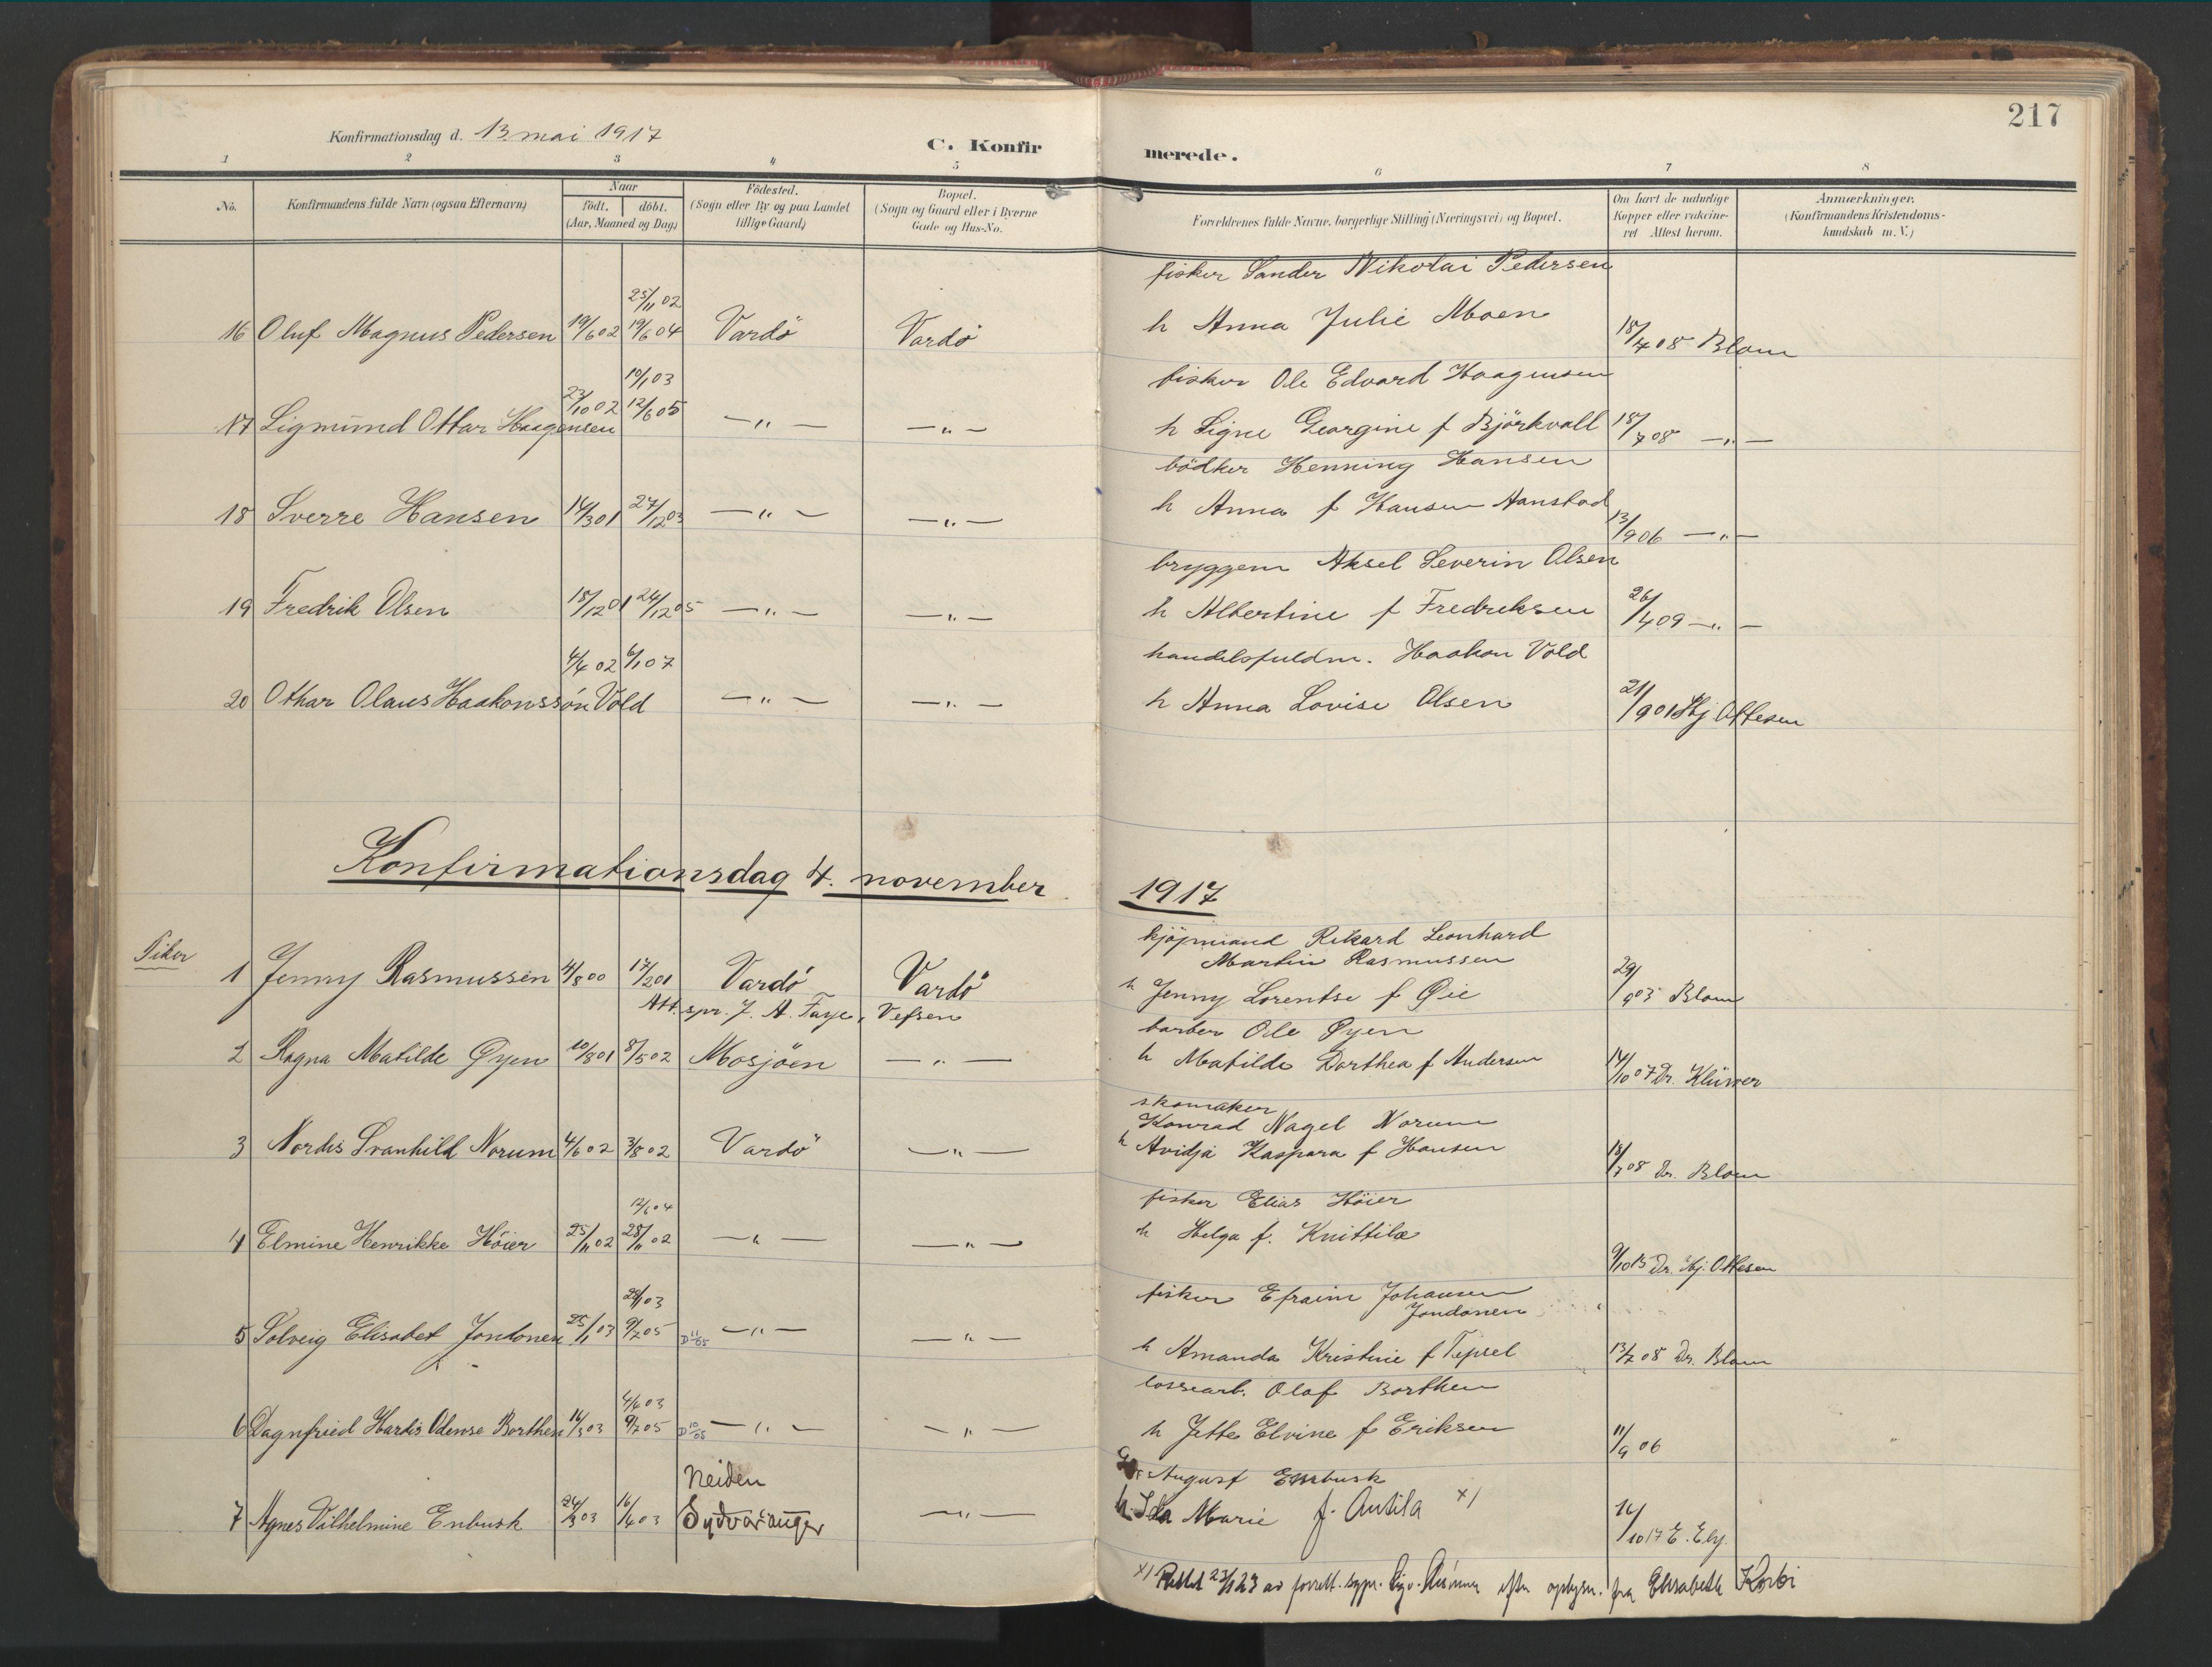 217
Konfirmationsdag d. 13 mai 1917
C. Konfirmerede.
1 2 3 4 5 6 7 8
No.
Konfirmandens fulde Navn (ogsaa Efternavn)
Naar
født. døbt.
(Aar, Maaned og Dag)
Fødested.
(Sogn eller By og paa Landet
tillige Gaard)
Bopæl.
(Sogn og Gaard eller i Byerne
Gade og Hus-No.
Forældrenes fulde Navne, borgerlige Stilling (Næringsvei) og Bopæl.
Om havt de naturlige
Kopper eller vakcine-
ret Attest herom.
Anmærkninger.
(Konfirmandens Kristendoms-
kundskab m. V.)
fisker Sander Nikolai Pedersen
25/11 02
16 Oluf Magnus Pedersen 19/6 02 19/6 04 Vardö Vardö h Anna Julie Moen 18/7 08 Blom
10/1 03 fisker Ole Edvard Haagensen
17 Sigmund Ottar Haagensen 23/10 02 12/6 05 —„— —„— h Signe Georgine f Björkvall 18/7 08 —„—
bödker Henning Hansen
18 Sverre Hansen 14/3 01 27/12 03 —„— —„— h Anna f Hansen Aanstad 13/9 06 —„—
bryggem Aksel Severin Olsen
19 Fredrik Olsen 18/12 01 24/12 05 —„— —„— h Albertine f Fredriksen 26/4 09 —„—
4/4 02 6/1 07 handelsfuldm. Haakon Vold
20 Othar Olaus Haakonssön Vold —„— —„— h Anna Lovise Olsen 21/9 01 Hj Ottesen
Konfirmationsdag 4. november 1917
Piker
kjöpmand Rikard Leonhard
Martin Rasmussen
1 Jenny Rasmussen 4/8 00 17/2 01 Vardö Vardö h Jenny Lorentse f Øie 29/9 03 Blom
Att. spr. J. A. Faye, Vefsen
barber Ole Øyen
2 Ragna Matilde Øyen 10/8 01 8/5 02 Mosjöen —„— h Matilde Dorthea f Andersen 14/10 07 Dr. Klüwer
skomaker
Konrad Nagel Norum
3 Nordis Svanhild Norum 4/6 02 3/8 02 Vardö —„— h Avidja Kaspara f Hansen 18/7 08 Dr. Blom
12/6 04 fisker Elias Höier
4 Elmine Henrikke Höier 25/11 02 28/11 02 —„— —„— h Helga f. Knittilæ 9/10 13 Dr. Hj. Ottesen
28/1 03 fisker Efraim Johansen
Jondonen
5 Solveig Elisabet Jondonen 25/1 03 9/7 05 D 11/05 —„— —„— h Amanda Kristine f Tepsel 13/7 08 Dr. Blom
4/6 03 lossearb. Olaf Borthen
6 Dagnfried Hardis Odense Borthen 14/3 03 9/7 05 D 10/05 —„— —„— h Jette Elvine f Eriksen 11/9 06
Neiden August Enbusk
7 Agnes Vilhelmine Enbusk 24/3 03 16/4 03 Sydvaranger —„— h. Ida Marie f. Antila x) 14/10 17 E. Eby.
x) Rettet 23/1 23 av forrett. sogpr. efter oplysn. fra Elisabeth Korbi